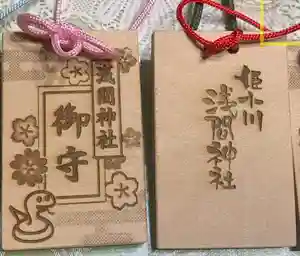 浅間神社
御守
姫小川
浅間神社